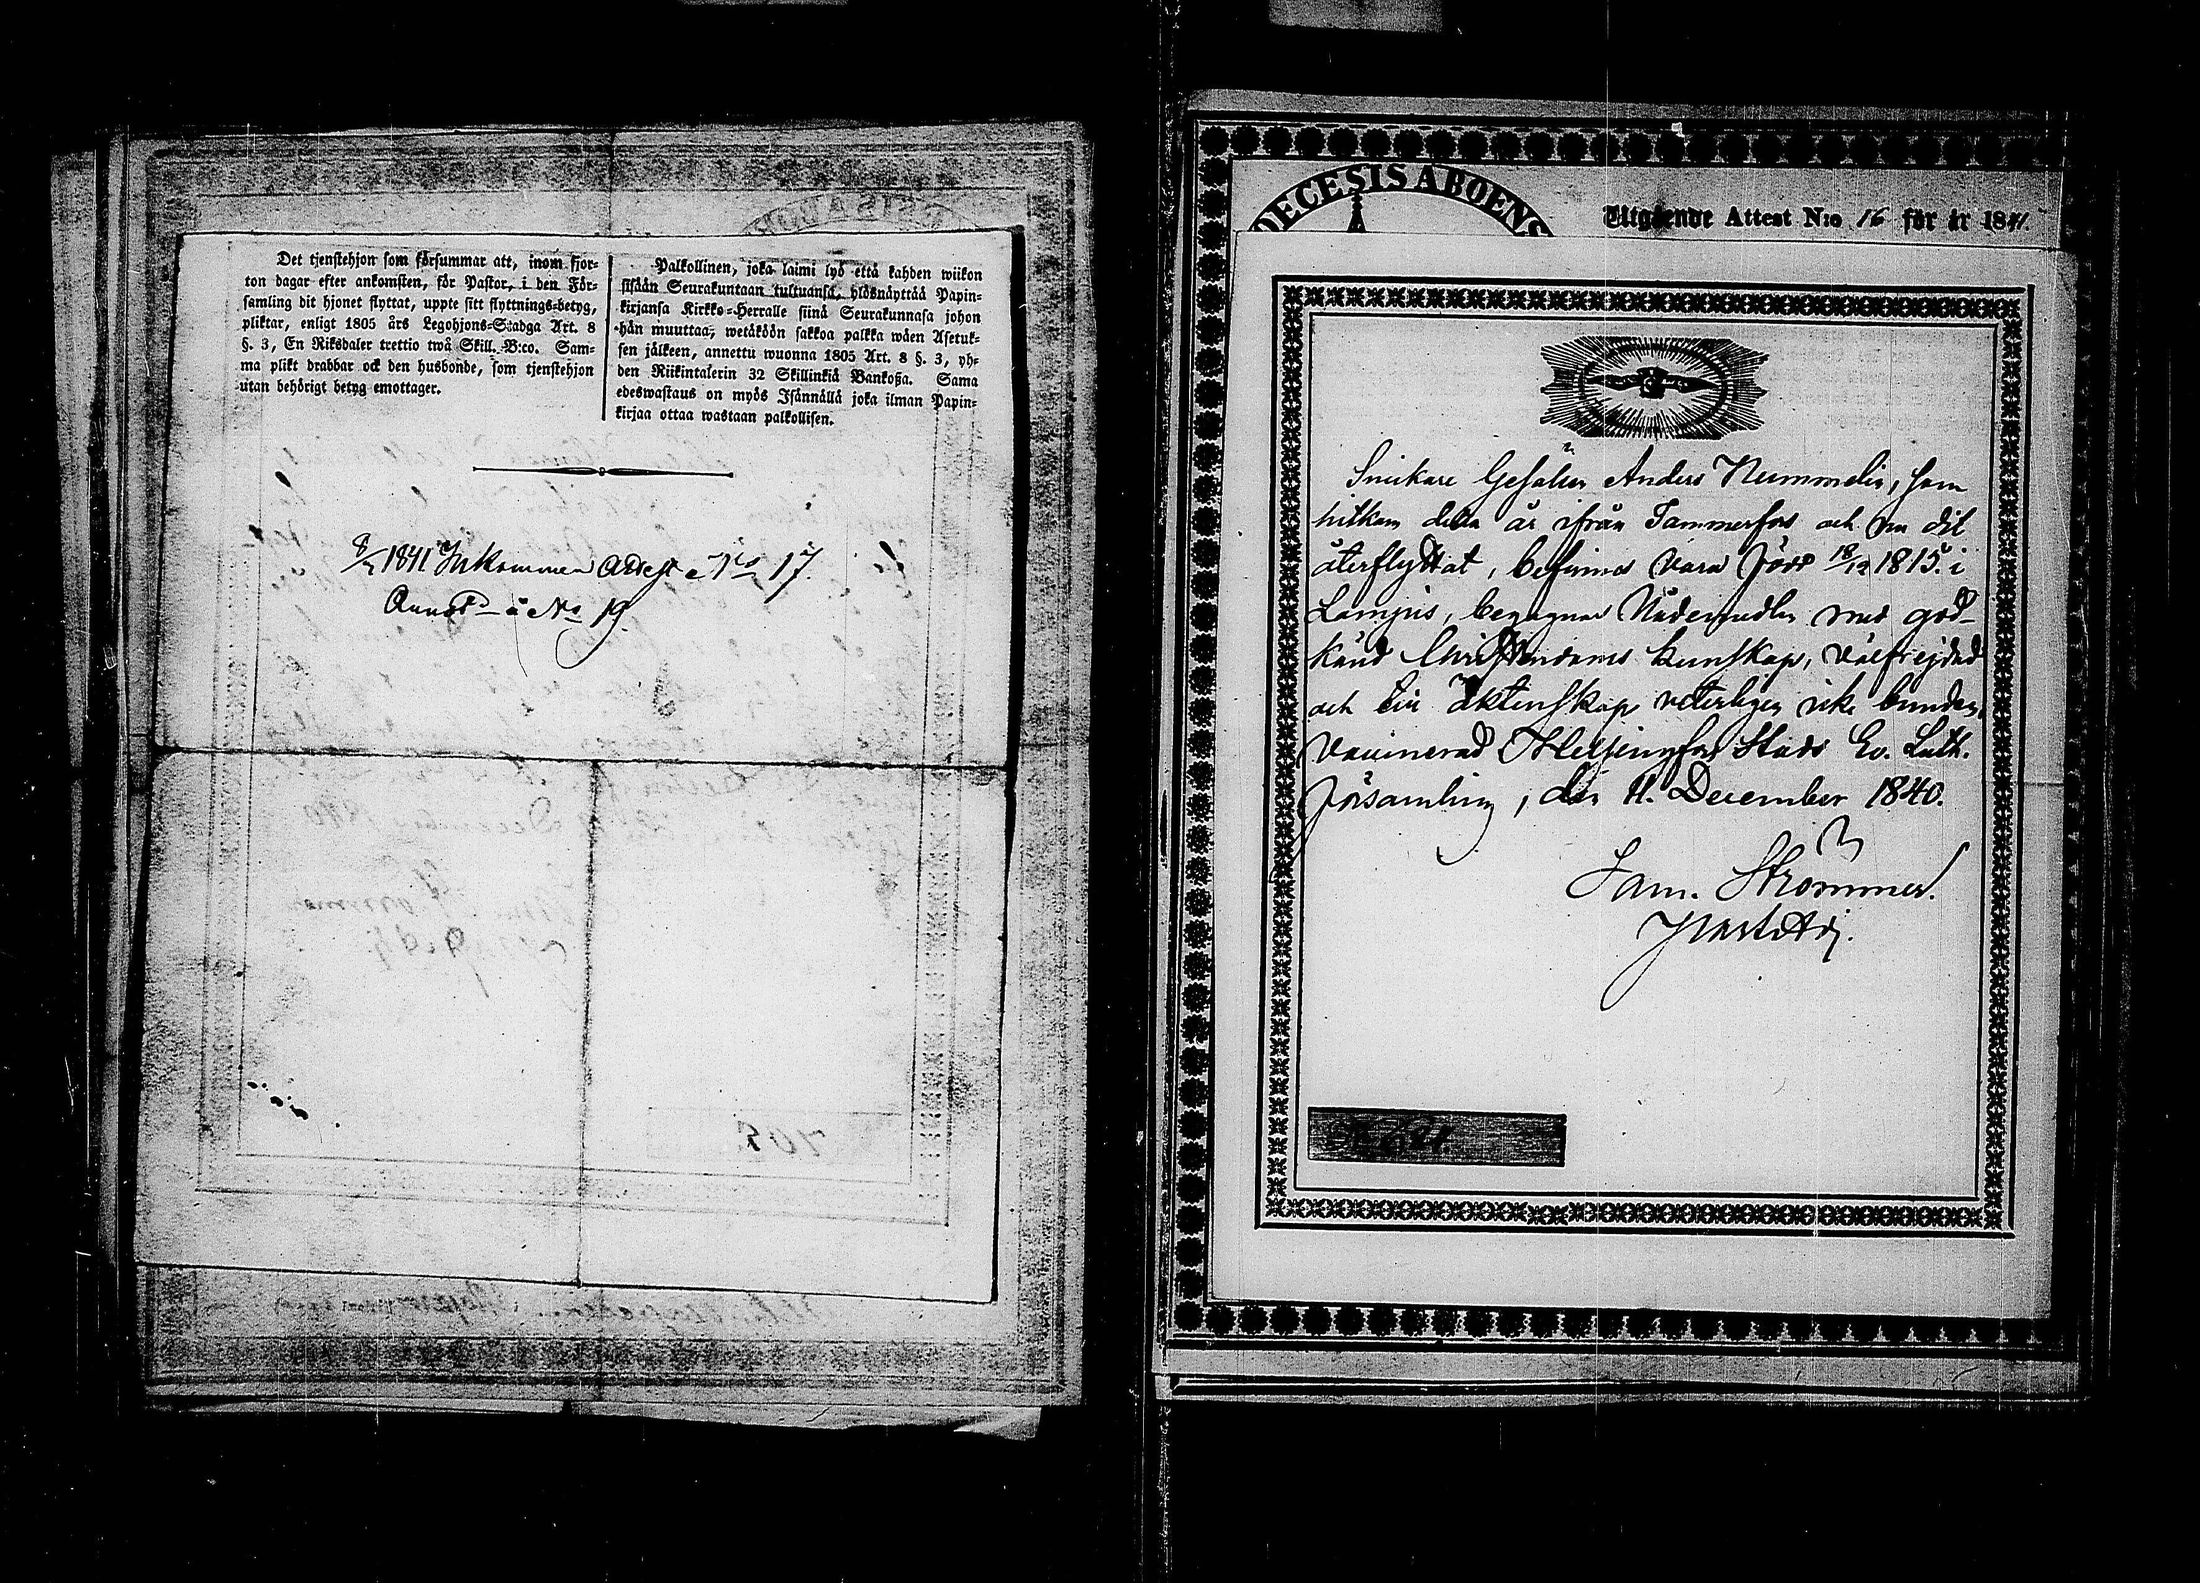 Det tjenstehjon som försummar att, inom fjor-
ton dagar efter ankomsten, för Pastor, i den För-
samling dit hjonet flyttat, uppte sitt flyttnings-betyg,
pliktar, enligt 1805 års Legohjons-Stadga Art. 8
§. 3, En Riksdaler trettio twå Skill. B:co. Sam-
ma plikt drabbar ock den husbonde, som tjenstehjon
utan behörigt betyg emottager.
Palkollinen, joka laimi lyö että kahden wiikon
sisään Seurakuntaan tultuansa, ylösnäyttää Papin-
kirjansa Kirkko-Herralle siinä Seurakunnasa johon
hän muuttaa, wetäköön sakkoa palkka wäen Asetuk-
sen jälkeen, annettu wuonna 1805 Art. 8 §. 3, yh-
den Riikintalerin 32 Skillinkiä Bankoßa. Sama
edeswastaus on myös Isännällä joka ilman Papin-
kirjaa ottaa wastaan palkollisen.
8/1 1841 Inkommen Attest No 17.
Annot. å No 19.
DECESIS ABOENS
Utgående Attest N:o 16 för år 1841.
Snickare Gesällen Anders Nummelin, som
hitkom detta år ifrån Tammerfors och nu dit
återflyttat, befinnes vara född 18/12 1815. i
Lampis, begagnar Nådemedlen med god-
känd Christendoms kunskap, välfrejdad
och till äktenskap veterligen icke bunden,
vaccinerad. Helsingfors Stads Ev. Luth.
församling, den 11. December 1840.
Sam. Strömmer.
Past. Adj.